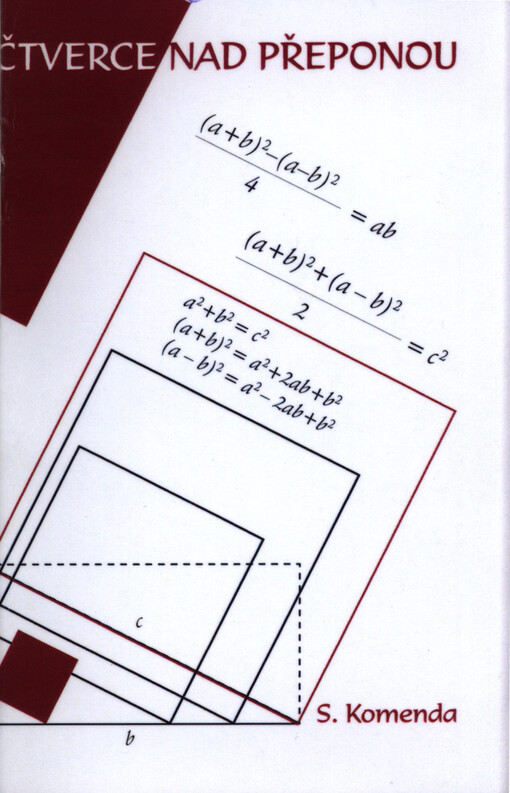 ČTVERCE NAD PŘEPONOU
(a+b)²–(a–b)²
4
= ab
(a+b)²+(a–b)²
2
= c²
a²+b² = c²
(a+b)² = a²+2ab+b²
(a–b)² = a²–2ab+b²
c
S. Komenda
b